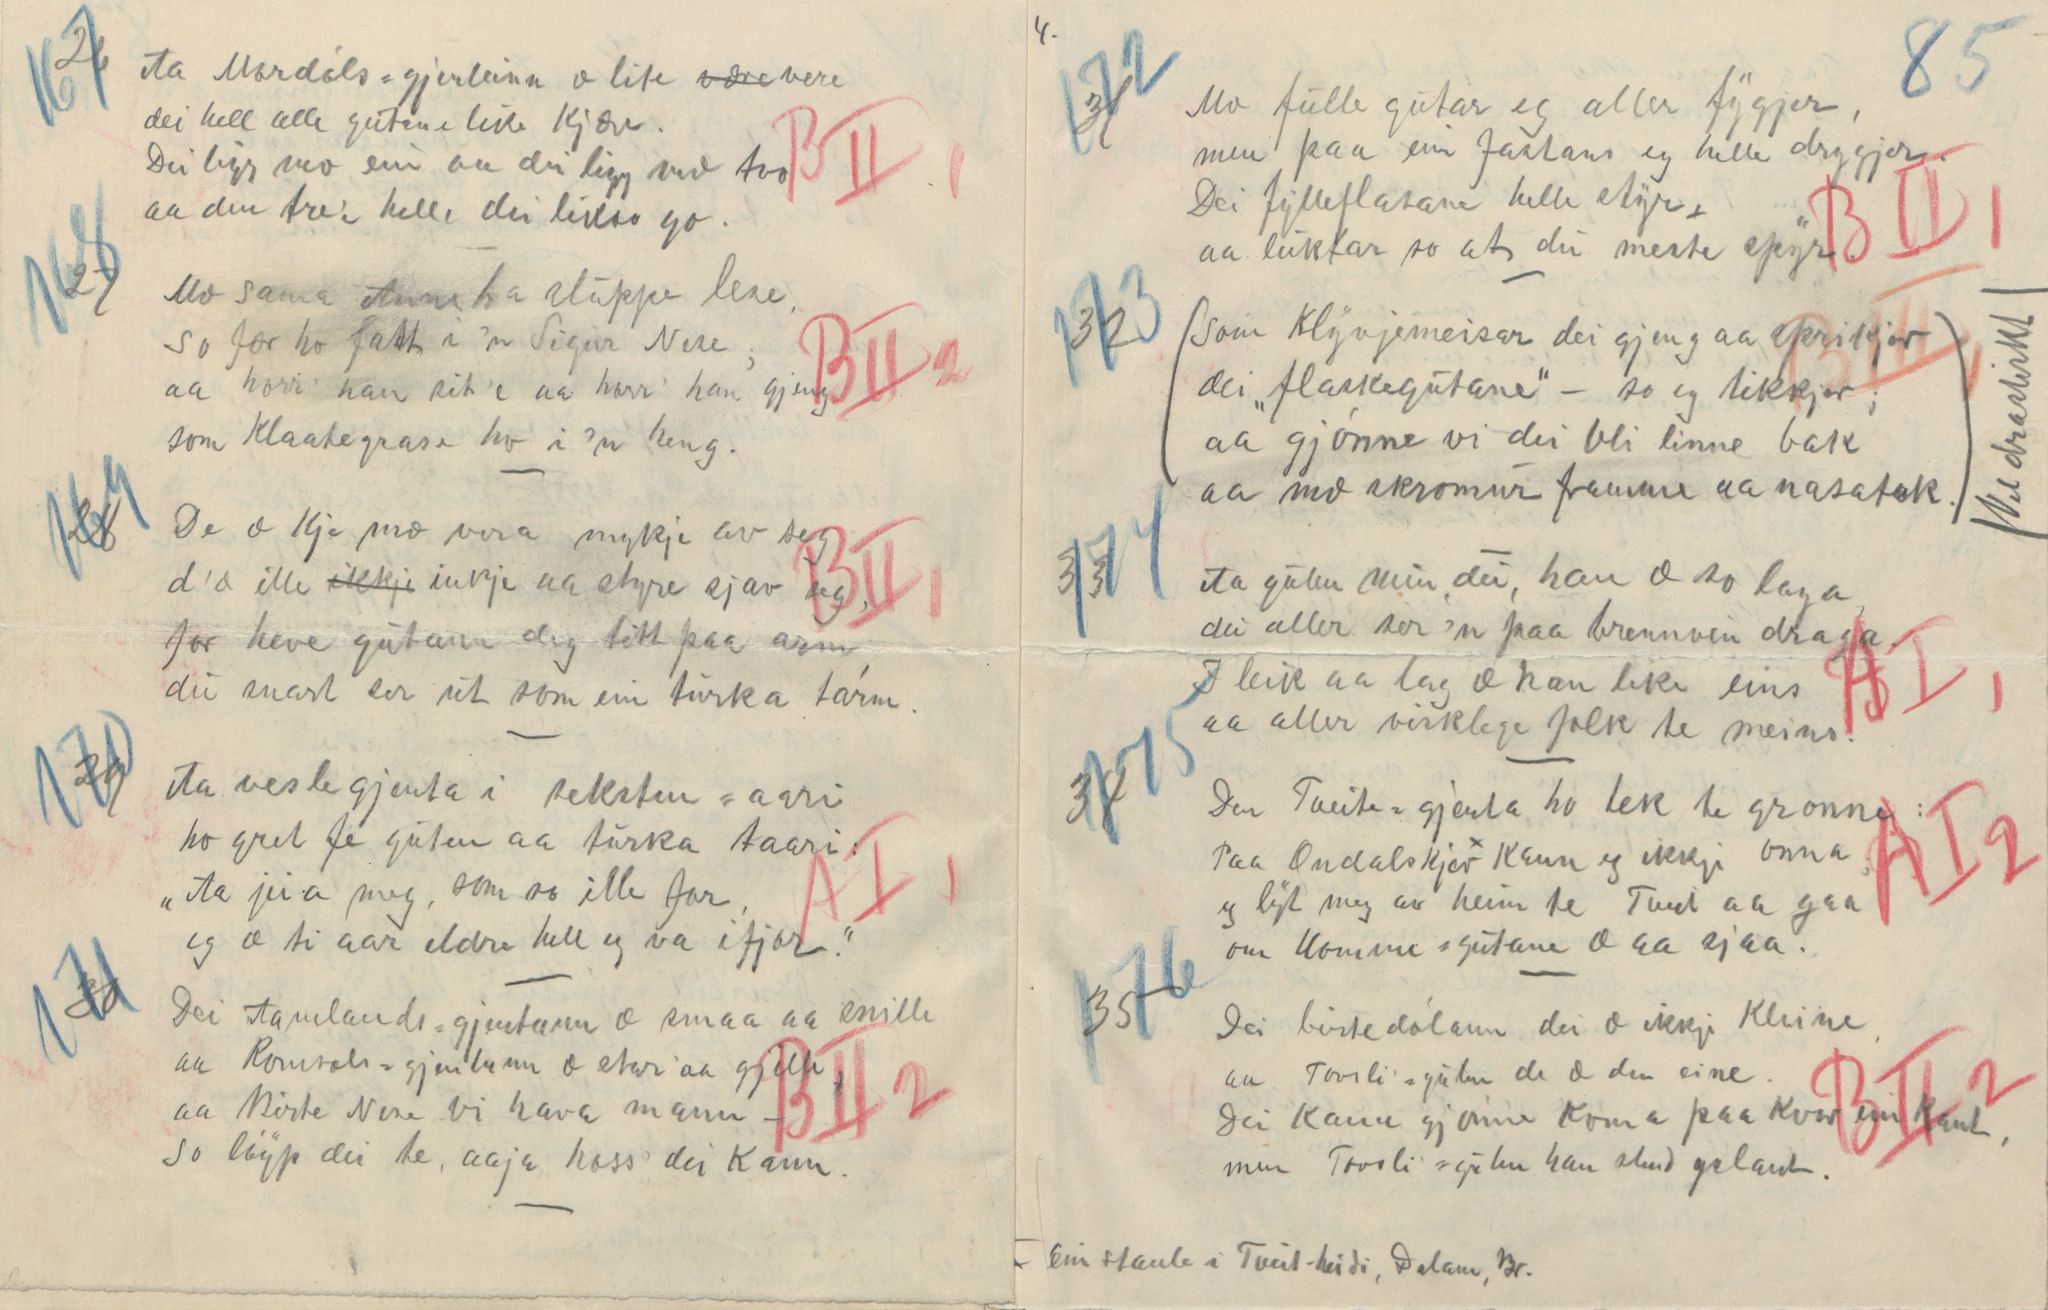 167 26
Aa Mordåls-gjenteinn æ lite være vere
dei hell alle gutane like kjære.
Dei ligg mæ ein aa dei ligg mæ tvo
aa den tre'e helle dei likso go.
BII 1
168 27
Mæ sama Anne ha sluppe lese,
so fær ho fatt i 'n Sigur Nese;
aa horr' han sit'e aa horr' han gjeng
som Klaategrase ho i 'n heng.
BII 2
169 28
De æ kje mæ vera mykje av seg
d'æ ille ikkje inkje aa styre sjav seg,
for heve gutann deg titt paa arm,
du snart ser ut som ein turka tarm.
BII 1
170 29
Aa veslegjenta i seksten-aari
ho gret fe guten aa turka taari:
"Aa jei a meg, som so ille for,
eg æ ti aar eldre hell eg va ifjor."
AI 1
171 30
Dei Aamlands-gjentann æ smaa aa snille
aa Romsols-gjentann æ stor' aa gjille,
aa Birte Nese vi hava mann –
so løyp dei te, aaja, hoss' dei kann.
BII 2
4.
85
172 31
Mæ fulle gutar eg aller fygjer,
men paa ein fastans eg helle drygjer.
Dei fylleflasane helle styr
aa luktar so at du meste spyr.
BII 1
173 32
(Som Klyvjemeisar dei gjeng aa sprikjer
dei "flaskegutane" – so eg tikkjer;
aa gjønne vi dei bli linne bak
aa mæ skromur framme aa nasatak.)
BIII 1
(Vel drastiskt)
174 33
Aa guten min, du, han æ so laga,
du aller ser 'n paa brennvin draga.
I leik aa lag æ han like eins
aa aller visklege folk te meins.
AI 1
175 34
Den Tveite-gjenta ho tek te gronne:
Paa Ondalskjær x kann eg ikkje onna,
eg lyt meg av heim te Tveit aa gaa
om Homme-gutane æ aa sjaa.
AI 2
176 35
Dei birtedålann dei æ ikkje Kleine,
aa Tovsli-guten de æ den eine.
Dei kann gjønne koma paa kvar ein kant,
men Tovsli-guten han sto galant.
BII 2
x Ein staule i Tveit-heidi, Dalane, Br.